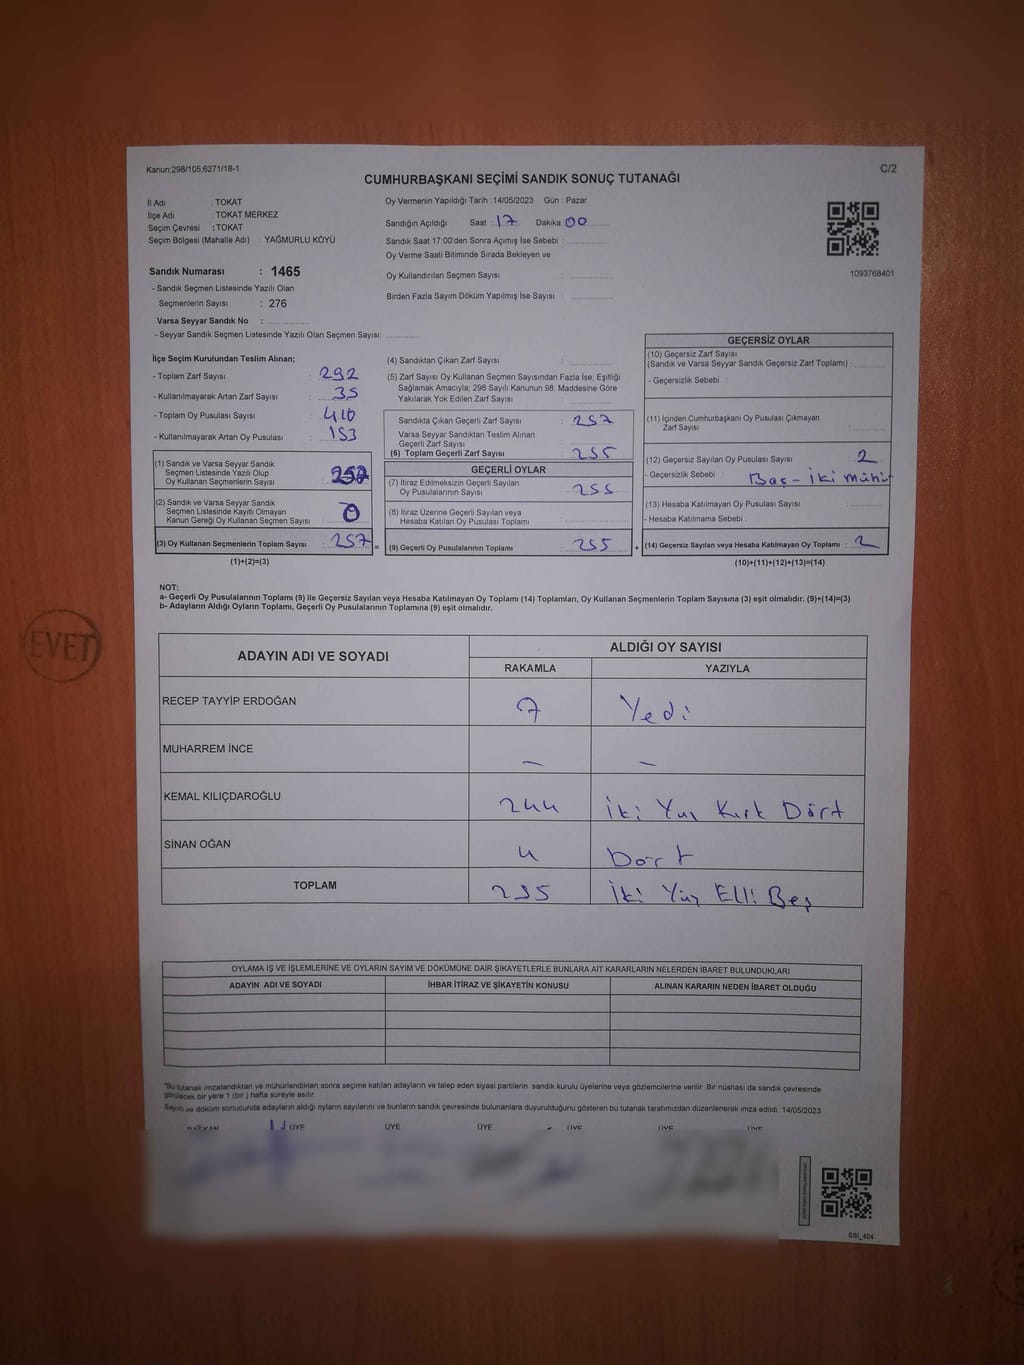 Kanun;298/105;6271/18-1
C/2
CUMHURBAŞKANI SEÇİMİ SANDIK SONUÇ TUTANAĞI
İl Adı : TOKAT
İlçe Adı : TOKAT MERKEZ
Seçim Çevresi : TOKAT
Seçim Bölgesi (Mahalle Adı) : YAĞMURLU KÖYÜ
Sandık Numarası : 1465
- Sandık Seçmen Listesinde Yazılı Olan
Seçmenlerin Sayısı : 276
Varsa Seyyar Sandık No :
- Seyyar Sandık Seçmen Listesinde Yazılı Olan Seçmen Sayısı:
Oy Vermenin Yapıldığı Tarih : 14/05/2023 Gün : Pazar
Sandığın Açıldığı Saat : 17 Dakika : 00
Sandık Saat 17:00'den Sonra Açımış İse Sebebi :
Oy Verme Saati Bitiminde Sırada Bekleyen ve
Oy Kullandırılan Seçmen Sayısı :
Birden Fazla Sayım Döküm Yapılmış İse Sayısı :
1093768401
İlçe Seçim Kurulundan Teslim Alınan;
- Toplam Zarf Sayısı : 292
- Kullanılmayarak Artan Zarf Sayısı : 35
- Toplam Oy Pusulası Sayısı : 410
- Kullanılmayarak Artan Oy Pusulası : 153
(1) Sandık ve Varsa Seyyar Sandık
Seçmen Listesinde Yazılı Olup
Oy Kullanan Seçmenlerin Sayısı : 257
(2) Sandık ve Varsa Seyyar Sandık
Seçmen Listesinde Kayıtlı Olmayan
Kanun Gereği Oy Kullanan Seçmen Sayısı : 0
(3) Oy Kullanan Seçmenlerin Toplam Sayısı : 257
(1)+(2)=(3)
(4) Sandıktan Çıkan Zarf Sayısı :
(5) Zarf Sayısı Oy Kullanan Seçmen Sayısından Fazla İse, Eşitliği
Sağlamak Amacıyla; 298 Sayılı Kanunun 98. Maddesine Göre
Yakılarak Yok Edilen Zarf Sayısı :
Sandıkta Çıkan Geçerli Zarf Sayısı : 257
Varsa Seyyar Sandıktan Teslim Alınan
Geçerli Zarf Sayısı :
(6) Toplam Geçerli Zarf Sayısı : 255
GEÇERLİ OYLAR
(7) İtiraz Edilmeksizin Geçerli Sayılan
Oy Pusulalarının Sayısı : 255
(8) İtiraz Üzerine Geçerli Sayılan veya
Hesaba Katılan Oy Pusulası Toplamı :
= (9) Geçerli Oy Pusulalarının Toplamı : 255
GEÇERSİZ OYLAR
(10) Geçersiz Zarf Sayısı
(Sandık ve Varsa Seyyar Sandık Geçersiz Zarf Toplamı) :
- Geçersizlik Sebebi :
(11) İçinden Cumhurbaşkanı Oy Pusulası Çıkmayan
Zarf Sayısı :
(12) Geçersiz Sayılan Oy Pusulası Sayısı : 2
- Geçersizlik Sebebi : Boş - İki Mühür
(13) Hesaba Katılmayan Oy Pusulası Sayısı :
- Hesaba Katılmama Sebebi :
+ (14) Geçersiz Sayılan veya Hesaba Katılmayan Oy Toplamı : 2
(10)+(11)+(12)+(13)=(14)
NOT:
a- Geçerli Oy Pusulalarının Toplamı (9) ile Geçersiz Sayılan veya Hesaba Katılmayan Oy Toplamı (14) Toplamları, Oy Kullanan Seçmenlerin Toplam Sayısına (3) eşit olmalıdır. (9)+(14)=(3)
b- Adayların Aldığı Oyların Toplamı, Geçerli Oy Pusulalarının Toplamına (9) eşit olmalıdır.
EVET
ADAYIN ADI VE SOYADI
ALDIĞI OY SAYISI
RAKAMLA YAZIYLA
RECEP TAYYİP ERDOĞAN 7 Yedi
MUHARREM İNCE – –
KEMAL KILIÇDAROĞLU 244 İki Yüz Kırk Dört
SİNAN OĞAN 4 Dört
TOPLAM 255 İki Yüz Elli Beş
OYLAMA İŞ VE İŞLEMLERİNE VE OYLARIN SAYIM VE DÖKÜMÜNE DAİR ŞİKAYETLERLE BUNLARA AİT KARARLARIN NELERDEN İBARET BULUNDUKLARI
ADAYIN ADI VE SOYADI İHBAR İTİRAZ VE ŞİKAYETİN KONUSU ALINAN KARARIN NEDEN İBARET OLDUĞU
*Bu tutanak imzalandıktan ve mühürlendikten sonra seçime katılan adayların ve talep eden siyasi partilerin sandık kurulu üyelerine veya gözlemcilerine verilir. Bir nüshası da sandık çevresinde
görülecek bir yere 1 (bir ) hafta süreyle asılır.
Sayım ve döküm sonucunda adayların aldığı oyların sayılarını ve bunların sandık çevresinde bulunanlara duyurulduğunu gösteren bu tutanak tarafımızdan düzenlenerek imza edildi. 14/05/2023
BAŞKAN ÜYE ÜYE ÜYE ÜYE ÜYE ÜYE
SSI_404